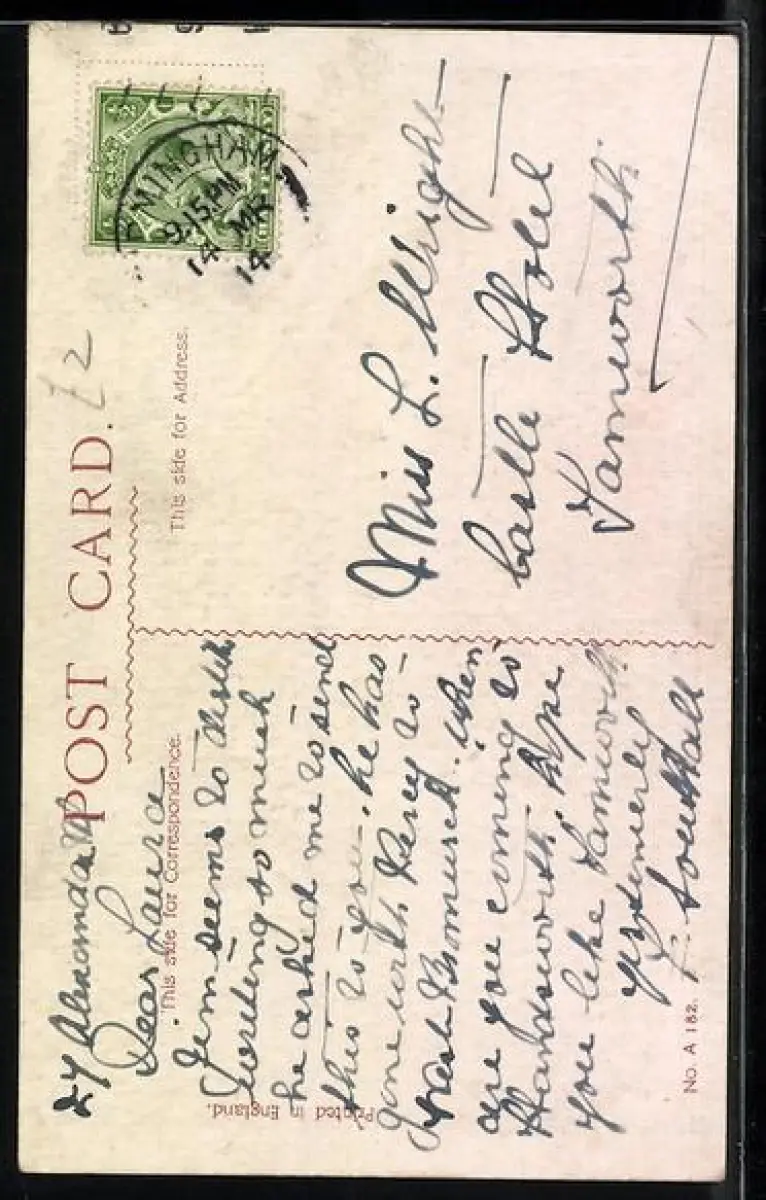 POST CARD.
12
This side for Correspondence.
This side for Address.
MINGHAM
9.15 PM
14 MR
14
27 Alexandra Rd
Dear Laura
Jim seems to dislike
writing so much
he asked me to send
this to you. he has
gone with Percy to
West Bromwich. when
are you coming to
Handsworth. hope
you like Tamworth
yrs
F. Southall
Miss L. Wright
Castle Hotel
Tamworth
Printed in England.
No. A 182.